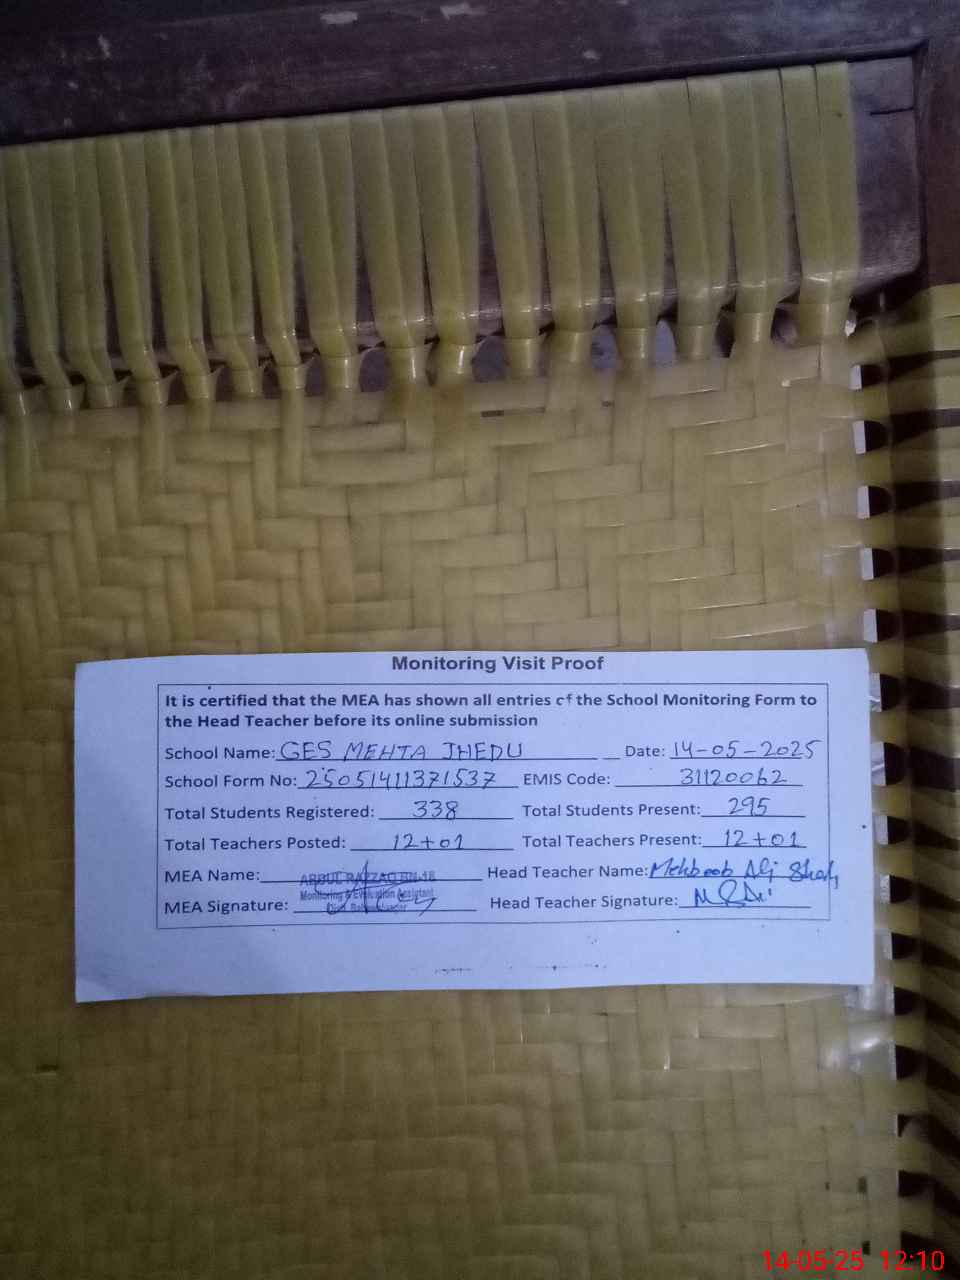 Monitoring Visit Proof
It is certified that the MEA has shown all entries of the School Monitoring Form to
the Head Teacher before its online submission
School Name: GES MEHTA JHEDU Date: 14-05-2025
School Form No: 25051411371537 EMIS Code: 31120062
Total Students Registered: 338 Total Students Present: 295
Total Teachers Posted: 12+01 Total Teachers Present: 12+01
MEA Name: ABDUL RAZZAQ BN-18 Head Teacher Name: Mehboob Ali Shah
Monitoring & Evaluation Assistant
MEA Signature: Distt. Bahawalnagar Head Teacher Signature:
14-05-25 12:10